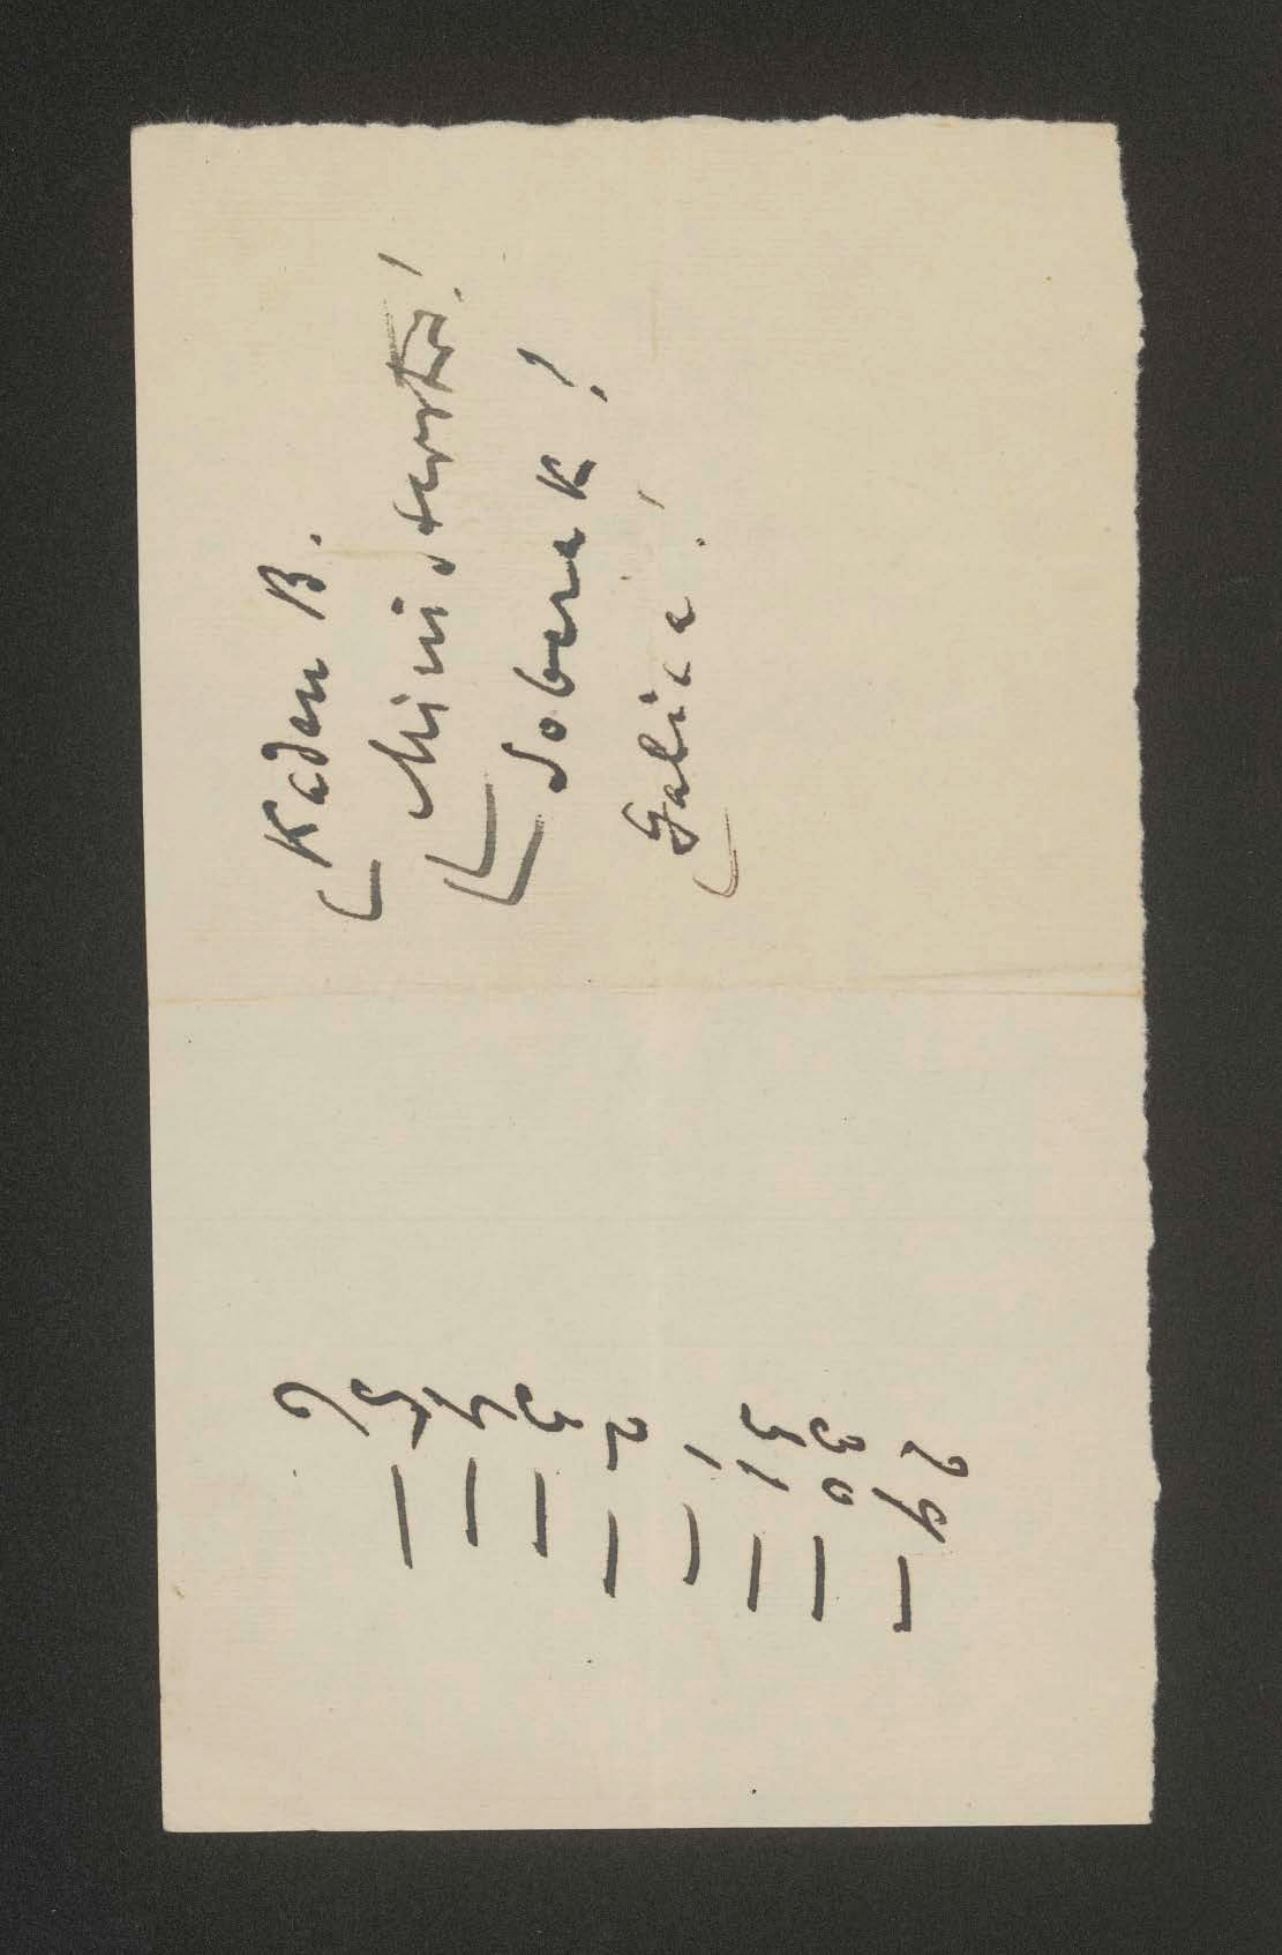 Kaden B.
Ministerstw!
Soberak!
Galica!
29 —
30 —
31 —
1 —
2 —
3 —
4 —
5 —
6